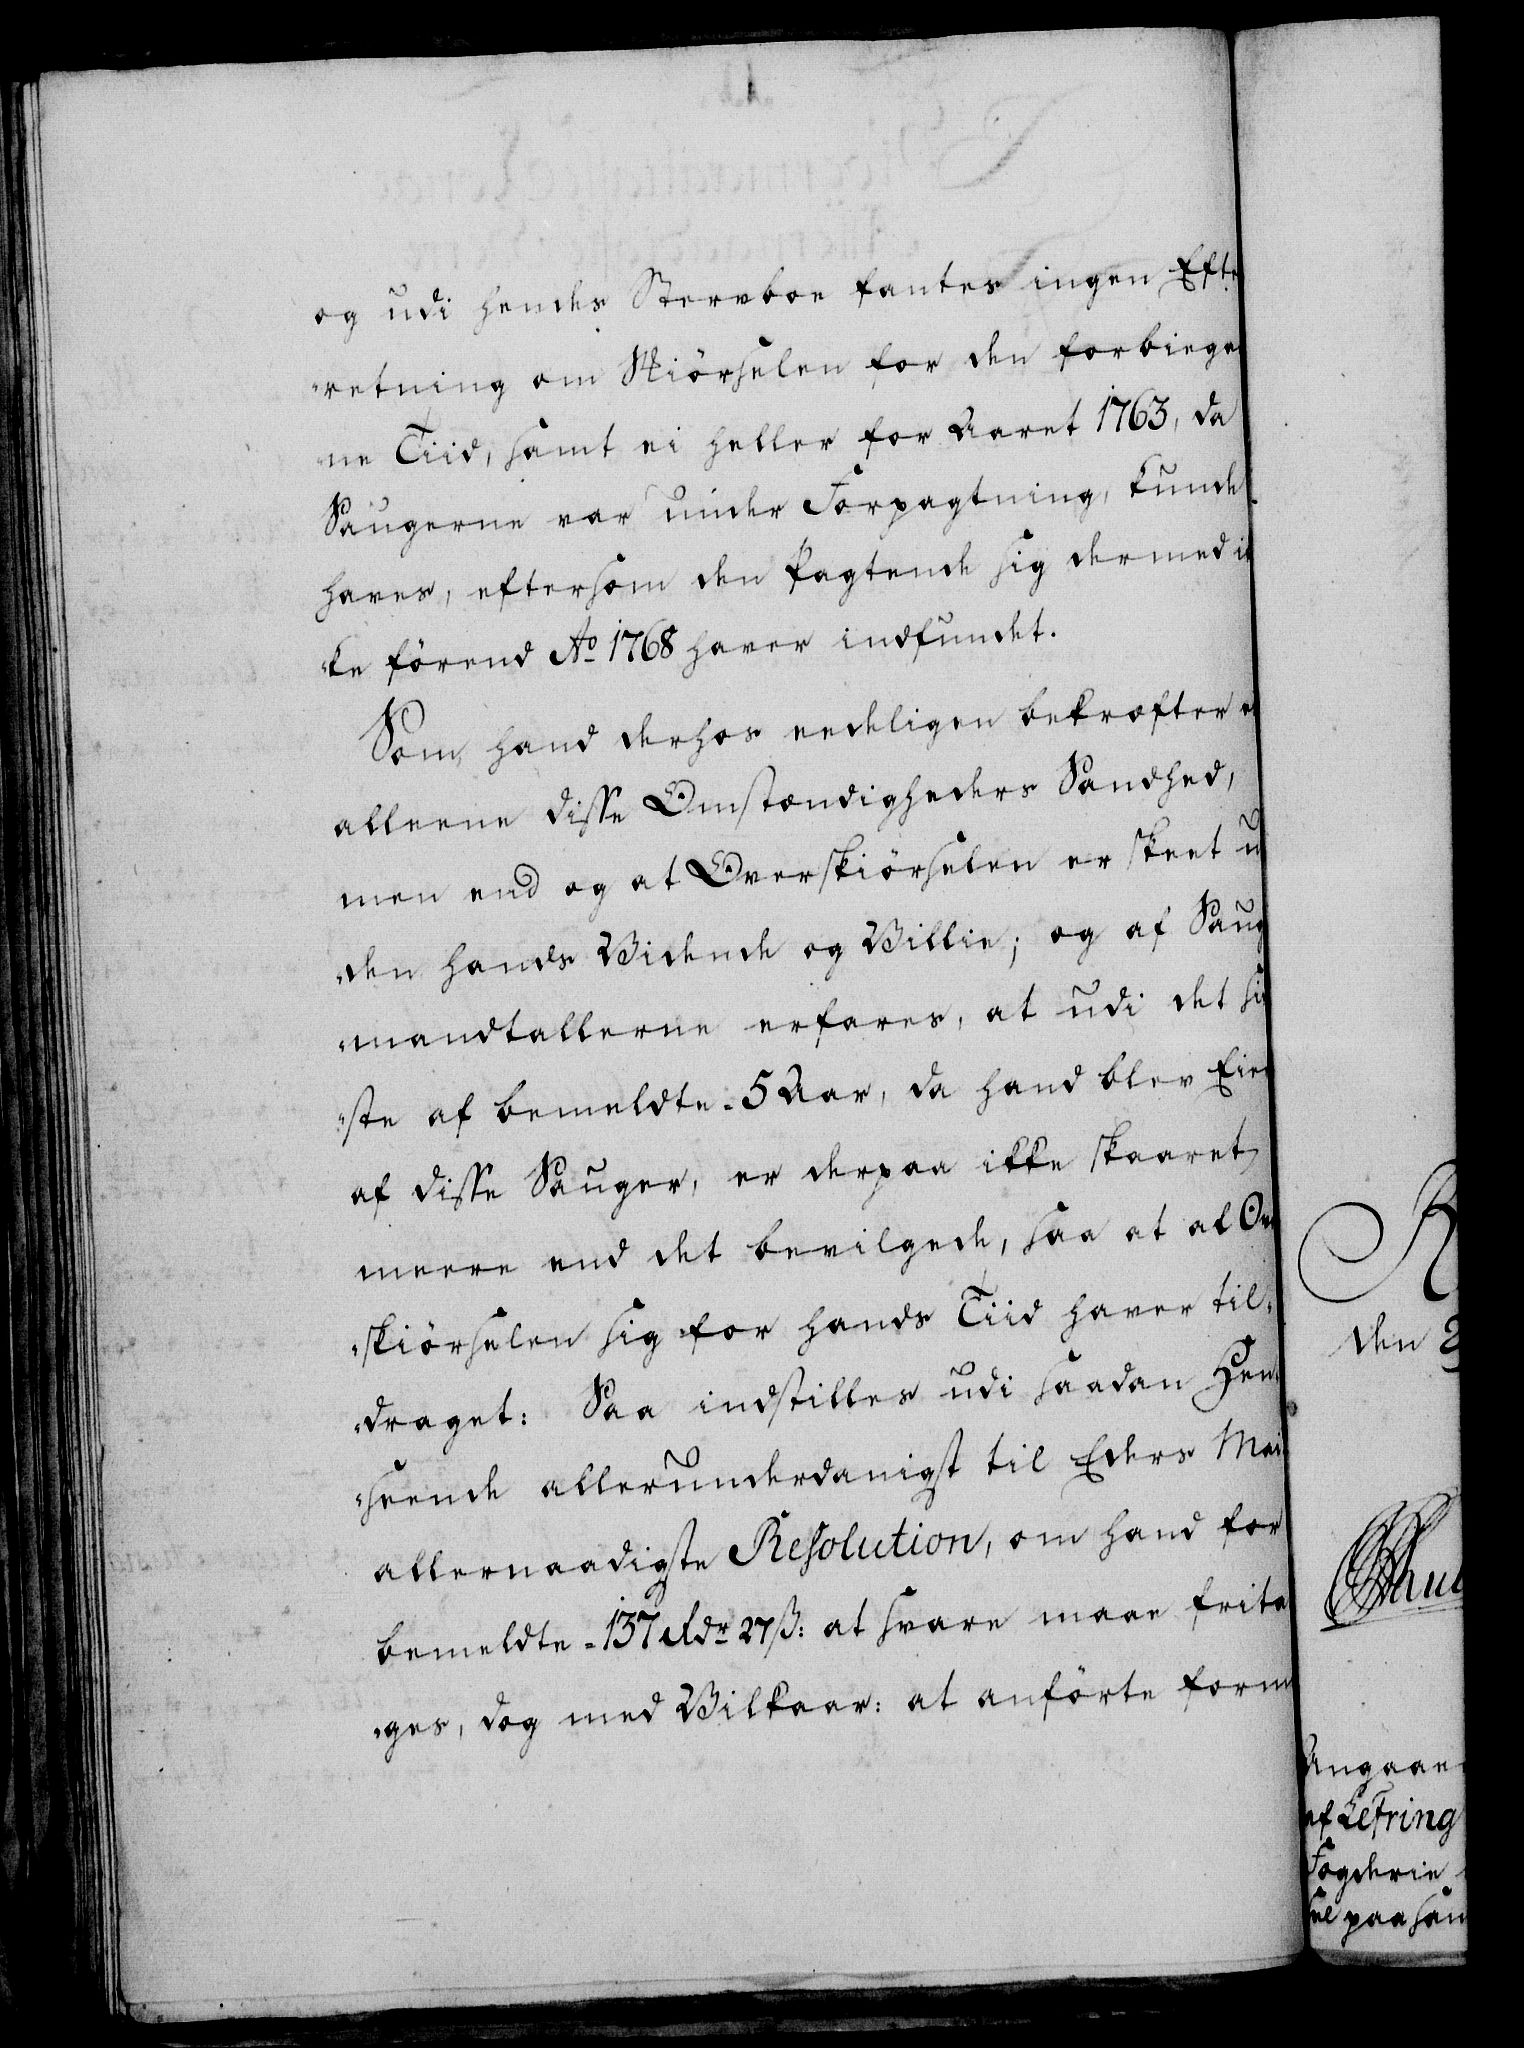 og udi hendes Stervboe fantes ingen Efte
retning om Skiörselen for den forbiega
ne Tiid, samt ei heller for Aaret 1763, da
Saugerne var under Forpagtning, kunde
haves, eftersom den Pagtende sig dermed ik
ke förend Ao 1768 haver indfundet.
Som hand derhos eedeligen bekræfter ei
alleene disse Omstændigheders Sandhed,
men end og at Overskiörselen er skeet u
den hands Vidende og Villie; og af Saug
mandtallerne erfares, at udi det si
ste af bemeldte 5 Aar, da hand blev Eier
af disse Sauger, er derpaa ikke skaaret
meere end det bevilgede, saa at al Over
skiörselen sig for hands Tiid haver til
draget: Saa indstilles udi saadan Hen
seende allerunderdanigst til Eders Mai
allernaadigste Resolution, om hand for
bemeldte 137 Rdr 27 ß: at svare maae frita
ges, dog med Vilkaar: at anförte form
den
Angaaen
af Lefring
Fogderie
paa sam